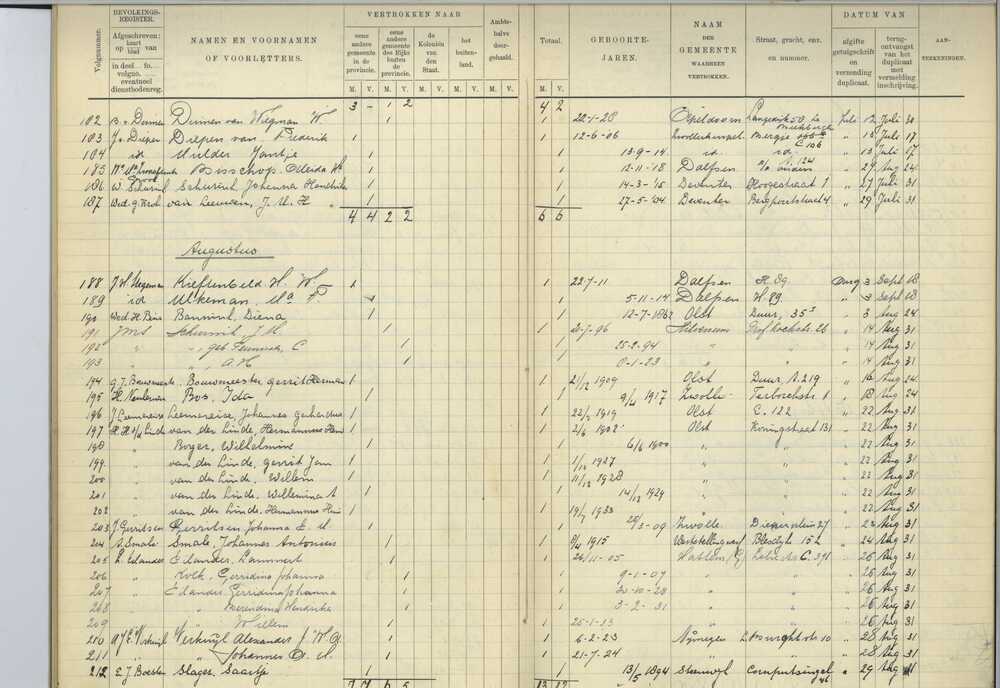 Volgnummer.
BEVOLKINGS-
REGISTER.
Afgeschreven:
kaart
op blad van
in deel . . fo. . .
volgno. . . .
eventueel
dienstbodenreg.
NAMEN EN VOORNAMEN
OF VOORLETTERS.
VERTROKKEN NAAR
eene
andere
gemeente
in de
provincie.
eene
andere
gemeente
des Rijks
buiten de
provincie.
de
Koloniën
van den
Staat.
het
buiten-
land.
Ambts-
halve
door-
gehaald.
Totaal.
GEBOORTE-
JAREN.
NAAM
DER
GEMEENTE
WAARHEEN
VERTROKKEN.
Straat, gracht, enz.
en nummer.
DATUM VAN
afgifte
getuigschrift
en
verzending
duplicaat.
terug-
ontvangst
van het
duplicaat
met
vermelding
inschrijving.
AAN-
TEEKENINGEN.
M. V. M. V. M. V. M. V. M. V. M. V.
3 - 1 2 4 2
102 Duinen van Wegman W 1 1 22-1-28 Apeldoorn Juli 12 Juli 30
103 J. v Diepen Diepen van Frederik 1 1 12-6-06 " 13 Juli 17
104 id Mulder Jantje 1 1 13-9-14 id id " 13 Juli 17
185 Bisschop 1 1 12-11-18 Dalfsen A. 124 " 27 Aug 24
186 Schuuril Johanna Hendrika 1 1 14-3-'15 Deventer Hoogestraat 1 " 27 Juli 31
187 Wed. G. Krol van Leeuwen, J. M. H 1 1 27-5-'04 Deventer " 29 Juli 31
4 4 2 2 6 6
Augustus
188 J H Wegeman Kieftenbeld H. W. 1 1 22-7-11 Dalfsen H. 89 Aug 3 Sept 18
189 id Mekeman, Ma F 1 1 5-11-14 Dalfsen H. 89 " 3 Sept 18
190 Diena 1 1 12-7-1862 Olst Duur, 35 " 3 Aug 24
191 Schuuril, J. H. 1 1 96 26 " 14 Aug 31
192 " " geb C 1 1 25-2-94 " " " 14 Aug 31
193 " " A. H. 1 1 0-1-23 " " " 14 Aug 31
194 G. J. Bouwmeester Bouwmeester, Gerrit Herman 1 1 21/12 1909 Olst Duur, A. 219 " 16 Aug 24
195 Bos, Ida 1 1 9/4 1917 Zwolle Terborchstr 1 " 18 Aug 24
196 J. Leemereize Leemereize, Johannes Gerhardus 1 1 22/2 1919 Olst C. 122 " 22 Aug 31
197 H. H. v/d Linde van der Linde, Hermannus Hen 1 1 2/6 1902 Olst Koningstraat 131 " 22 Aug 31
198 " Boger, Wilhelmine 1 1 6/6 1900 " " " 22 Aug 31
199 " van der Linde, Gerrit Jan 1 1 1/10 1927 " " " 22 Aug 31
200 " van der Linde, Willem 1 1 11/12 1928 " " " 22 Aug 31
201 " van der Linde, Willemina A 1 1 14/12 1929 " " " 22 Aug 31
202 " van der Linde, Hermannus Hen 1 1 19/7 1933 " " " 22 Aug 31
203 J. Gerritsen Gerritsen Johanna E. M 1 1 25/3-09 Zwolle Diezerplein 27 " 22 Aug 31
204 A. Smale Smale, Johannes Antonius 1 1 8/4 1915 Weststellingwerf Blesdijk 152 " 24 Aug 31
205 L. Edander Edander, Lammert 1 1 26/11-05 Hattem C. 391 " 26 Aug 31
206 " Kolk, Gerridina Johanna 1 1 9-1-07 " " " 26 Aug 31
207 " Edander, Gerridina Johanna 1 1 30-10-28 " " " 26 Aug 31
208 " " Berendina Hendrika 1 1 3-2-31 " " " 26 Aug 31
209 " " Willem 1 1 " " " 26 Aug 31
210 Verkuijl Alexander J. W. A. 1 1 6-2-23 Nijmegen 10 " 28 Aug 31
211 " Johannes A. M. 1 1 21-7-24 " " " 28 Aug 31
212 E. J. Boesten Slager, Saartje 1 1 13/5 1894 Steenwijk 46 " 29 Aug 31
7 7 6 5 13 12